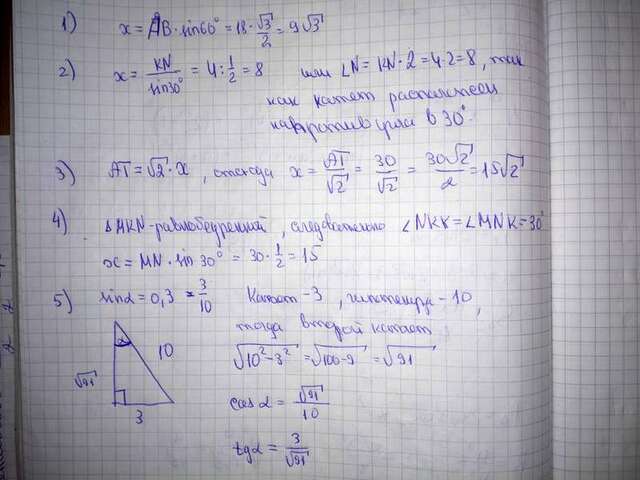 1) x = AB · sin 60° = 18 · √3/2 = 9√3
2) x = KN/sin 30° = 4 : 1/2 = 8 или LN = KN · 2 = 4·2 = 8, так
как катет расположен
напротив угла в 30°
3) AT = √2 · x, отсюда x = AT/√2 = 30/√2 = 30√2/2 = 15√2
4) ΔMKN - равнобедренный, следовательно ∠NKX = ∠MNK = 30°
x = MN · sin 30° = 30 · 1/2 = 15
5) sin α = 0,3 = 3/10 Катет - 3, гипотенуза - 10,
тогда второй катет
√10² - 3² = √100 - 9 = √91
cos α = √91/10
tg α = 3/√91
α
10
3
√91